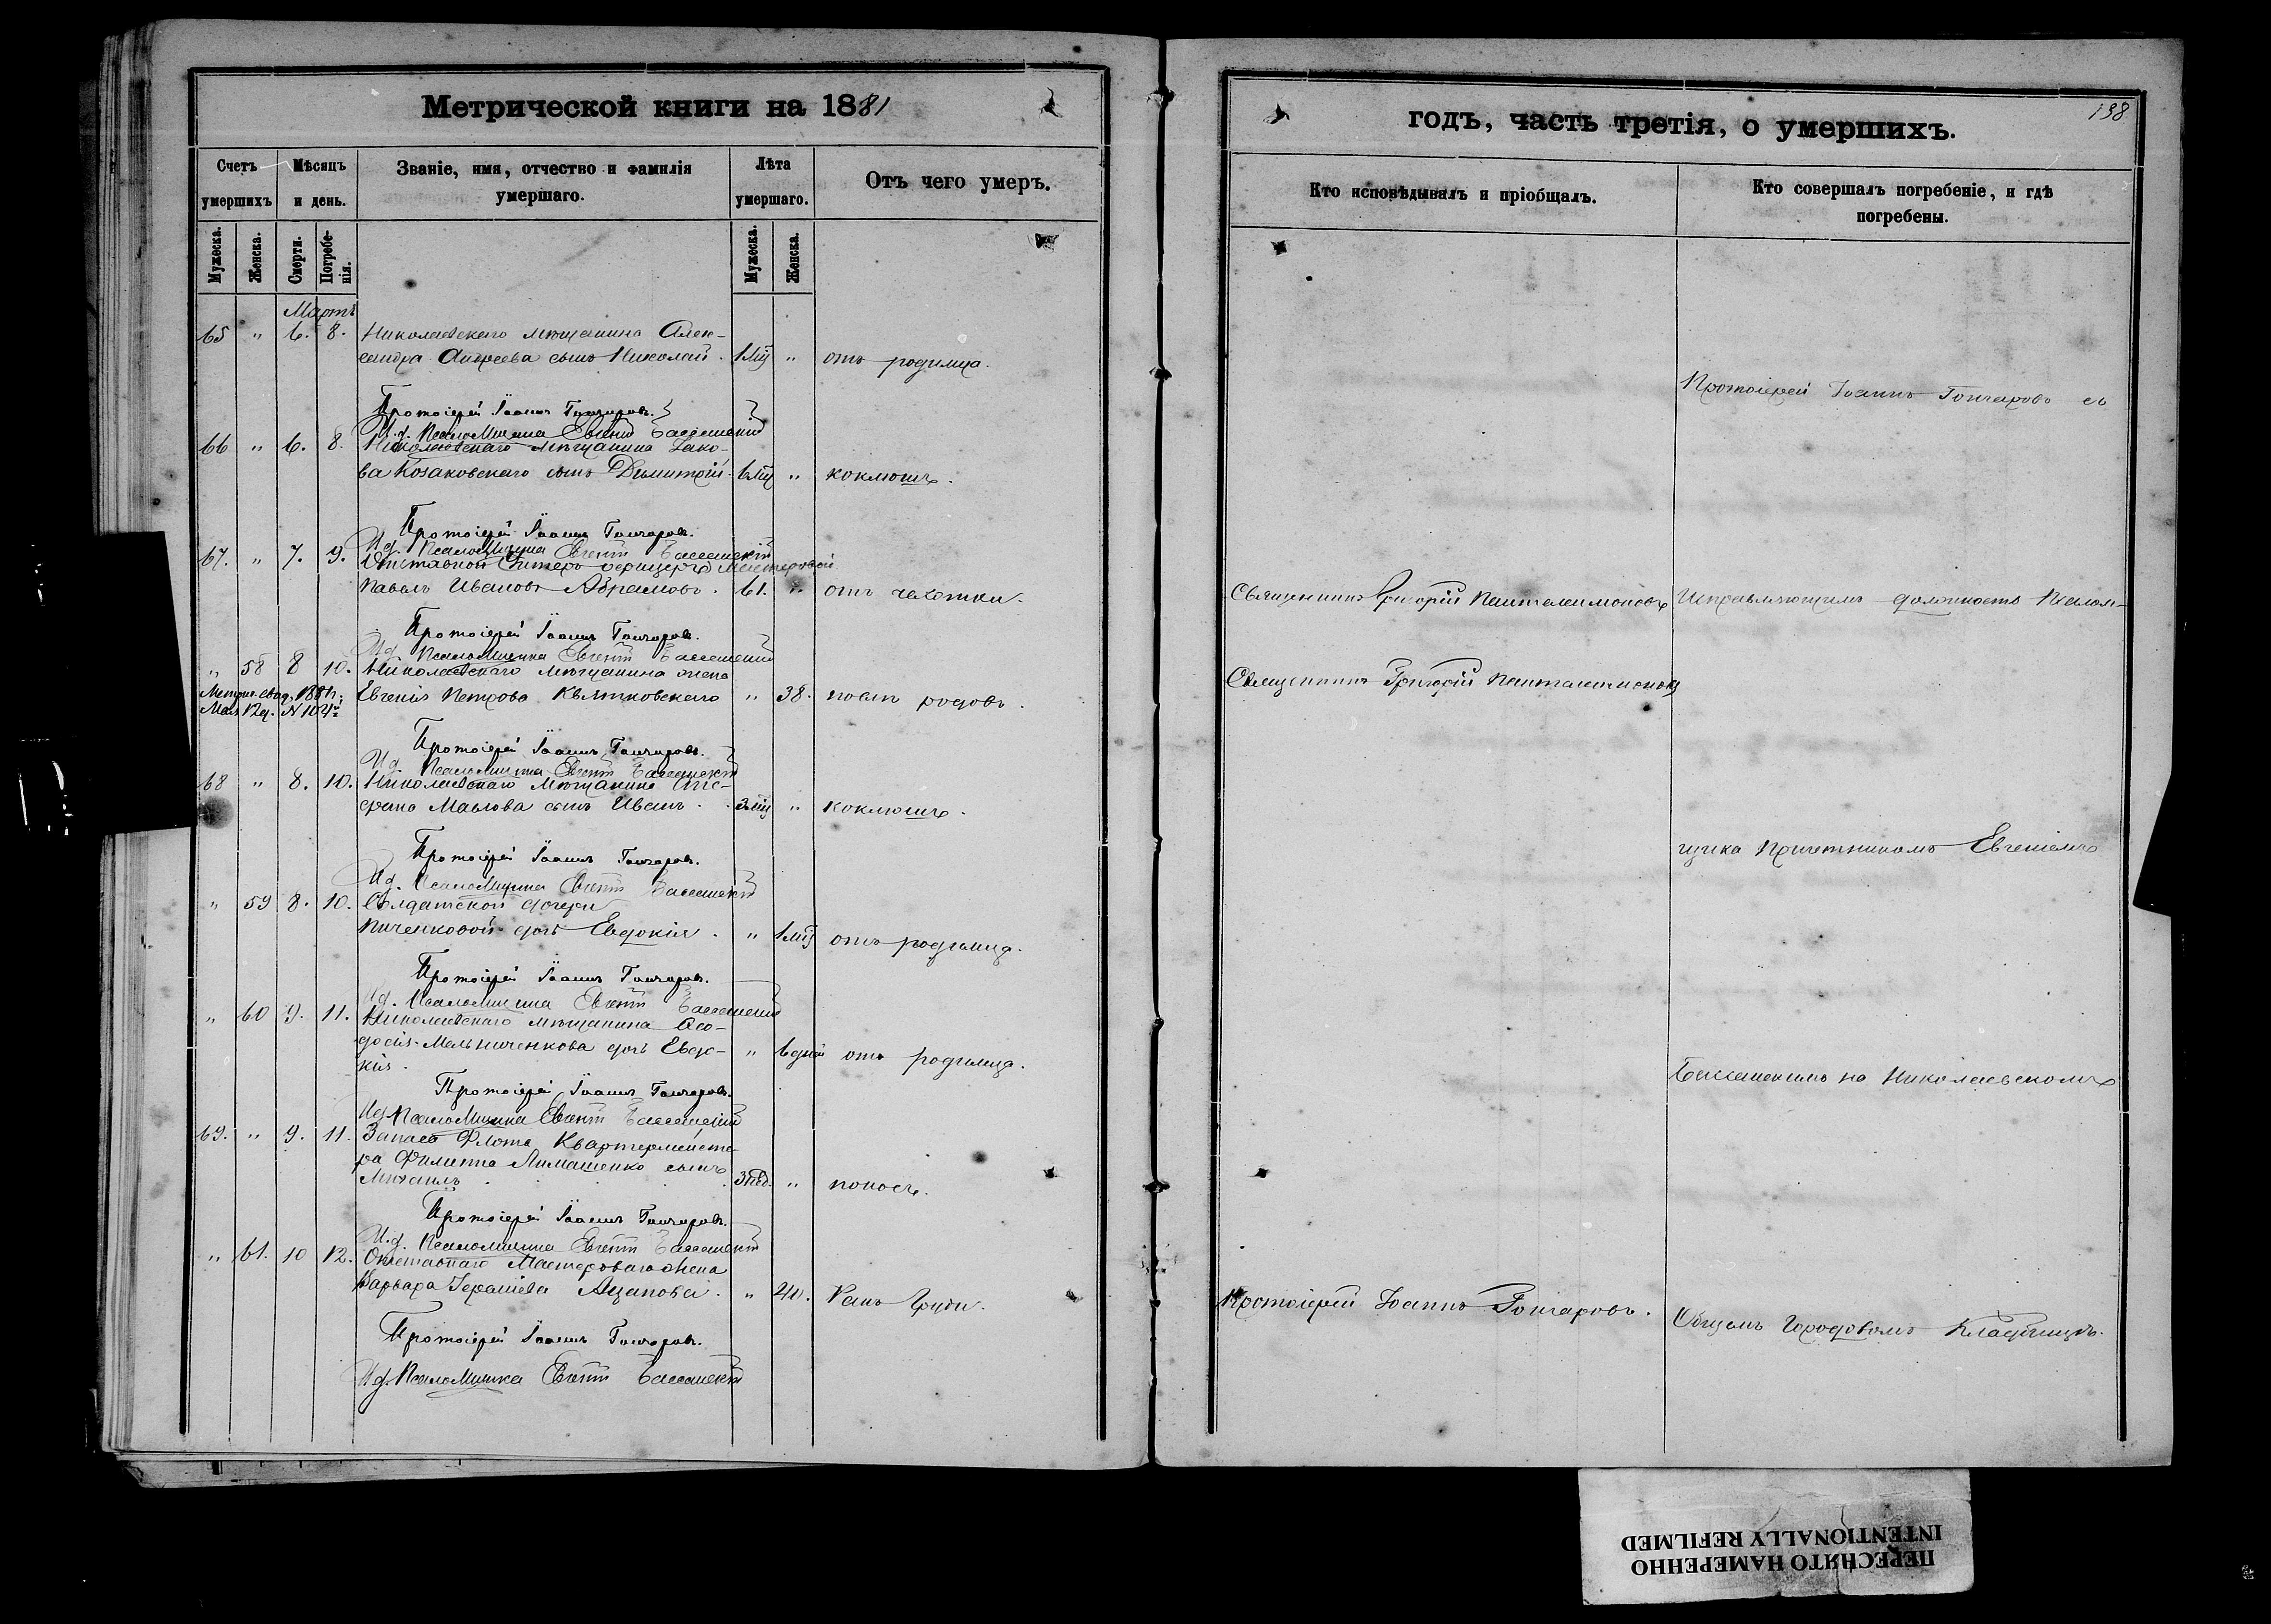 Метрической книги на 1881
Счетъ умершихъ
Мѣсяцъ и день.
Званіе, имя, отчество и фамилія умершаго.
Лѣта умершаго.
Отъ чего умеръ.
Мужеска.
Женска.
Смерти.
Погребе-
нія.
Мужеска.
Женска.
Мартъ
65 " 6. 8. Николаевскаго мѣщанина Алек-
сандра Андреева сынъ Николай. 1 мѣ " отъ родимца.
Протоіерей Іоаннъ Гончаровъ.
И.д. Псаломщика Евгеній
66 " 6. 8. Николаевскаго мѣщанина Іако-
ва Козаковскаго сынъ Димитрій 6 мѣ " коклюшъ.
Протоіерей Іоаннъ Гончаровъ.
И.д. Псаломщика Евгеній
67. " 7. 9. Отставной Унтеръ офицеръ Мастеровой
Павелъ Ивановъ Абрамовъ. 61. " отъ чахотки.
Протоіерей Іоаннъ Гончаровъ.
И.д. Псаломщика Евгеній
" 58 8 10. Николаевскаго мѣщанина жена
Евгенія Петрова Квятковскаго " 38. послѣ родовъ.
Протоіерей Іоаннъ Гончаровъ.
И.д. Псаломщика Евгеній
68 " 8. 10. Николаевскаго мѣщанина Сте-
фана Маслова сынъ Иванъ. 3 мѣ " коклюшъ.
Протоіерей Іоаннъ Гончаровъ.
И.д. Псаломщика Евгеній
" 59 8. 10. Солдатской дочери
Пиченковой дочь Евдокія. " 1 мѣ отъ родимца.
Протоіерей Іоаннъ Гончаровъ.
И.д. Псаломщика Евгеній
" 60 9. 11. Николаевскаго мѣщанина Ѳео-
досія Мельниченкова дочь Евдо- " 6 дней отъ родимца.
кія.
Протоіерей Іоаннъ Гончаровъ.
И.д. Псаломщика Евгеній
69. " 9. 11. Запаса Флота Квартермейсте-
ра Филиппа Лимашенко сынъ
Михаилъ 3 нед. " поносъ.
Протоіерей Іоаннъ Гончаровъ.
И.д. Псаломщика Евгеній
" 61. 10 12. Отставнаго Мастероваго жена
Варвара " 40. Ракъ Груди.
Протоіерей Іоаннъ Гончаровъ.
И.д. Псаломщика Евгеній
годъ, часть третія, о умершихъ.
198
Кто исповѣдывалъ и пріобщалъ.
Кто совершалъ погребеніе, и гдѣ
погребены.
Протоіерей Іоаннъ Гончаровъ съ
Священникъ Григорій Пантелеимоновъ Исправляющимъ должность Псалом-
Священникъ Григорій Пантелеимоновъ
щика Причетникомъ Евгеніемъ
на Николаевскомъ
Протоіерей Іоаннъ Гончаровъ. Общемъ Городовомъ Кладбищѣ.
ПЕРЕСНЯТО НАМЕРЕННО
INTENTIONALLY REFILMED